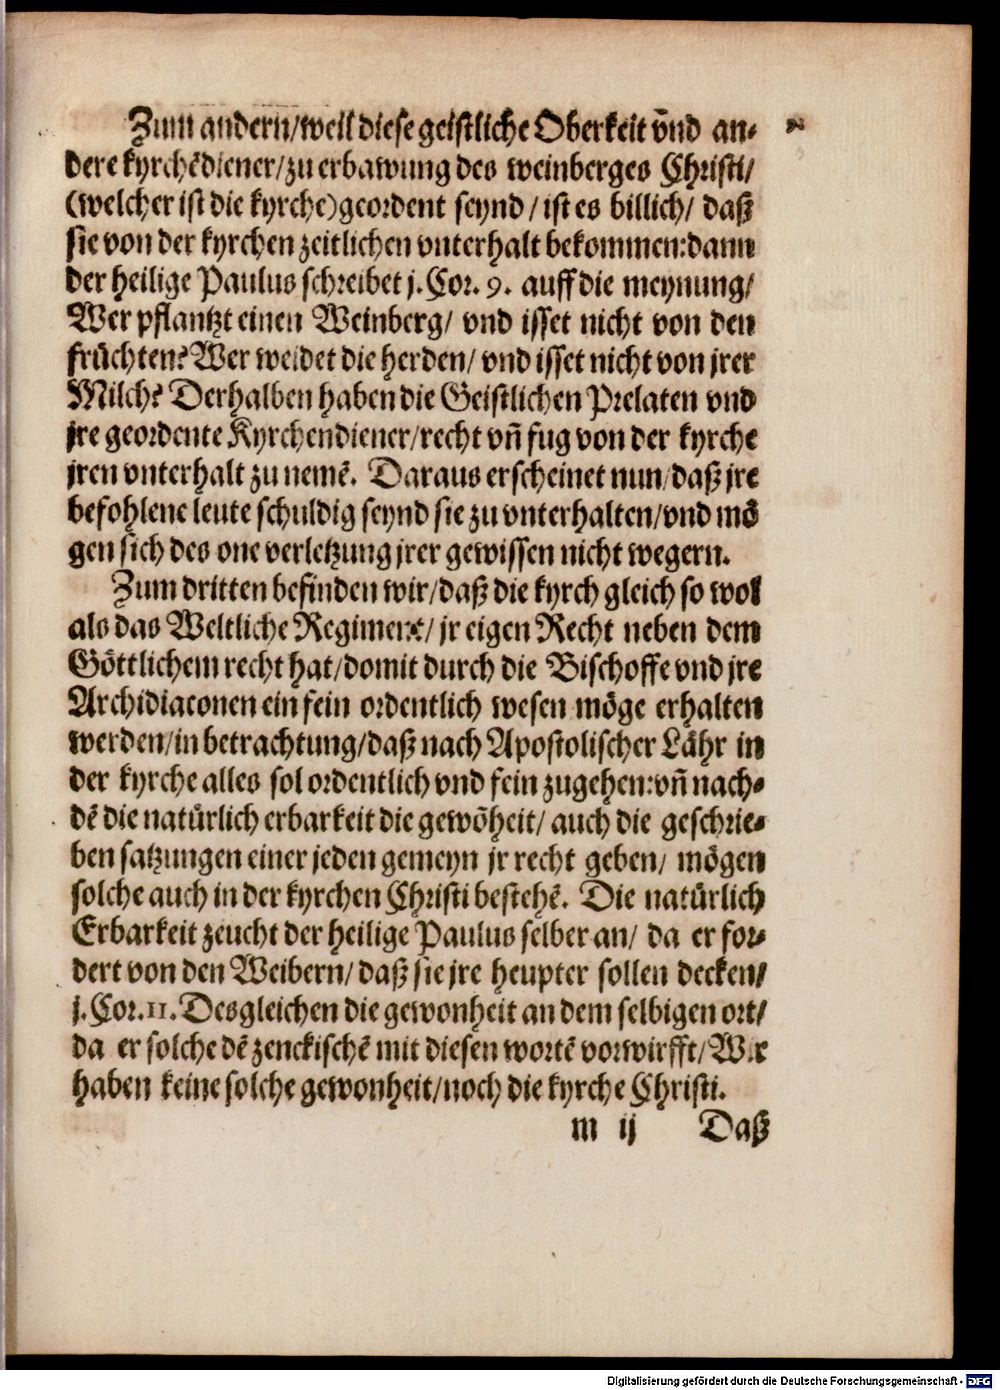 Zum andern/weil diese geistliche Oberkeit vnd an-
dere kyrchẽdiener/zu erbawung des weinberges Christi/
(welcher ist die kyrche)geordent seynd/ist es billich/ daß
sie von der kyrchen zeitlichen vnterhalt bekommen:dann
der heilige Paulus schreibet j.Cor. 9. auff die meynung/
Wer pflantzt einen Weinberg/ vnd isset nicht von den
früchten? Wer weidet die herden/ vnd isset nicht von jrer
Milch? Derhalben haben die Geistlichen Prelaten vnd
jre geordente Kyrchendiener/recht vñ fug von der kyrche
jren vnterhalt zu nemẽ. Daraus erscheinet nun/daß jre
befohlene leute schuldig seynd sie zu vnterhalten/vnd mö
gen sich des one verletzung jrer gewissen nicht wegern.
Zum dritten befinden wir/daß die kyrch gleich so wol
als das Weltliche Regiment/ jr eigen Recht neben dem
Göttlichem recht hat/domit durch die Bischoffe vnd jre
Archidiaconen ein fein ordentlich wesen möge erhalten
werden/in betrachtung/daß nach Apostolischer Lähr in
der kyrche alles sol ordentlich vnd fein zugehen:vñ nach-
dẽ die natürlich erbarkeit die gewõheit/ auch die geschrie-
ben satzungen einer jeden gemeyn jr recht geben/ mögen
solche auch in der kyrchen Christi bestehẽ. Die natürlich
Erbarkeit zeucht der heilige Paulus selber an/ da er for-
dert von den Weibern/ daß sie jre heupter sollen decken/
j.Cor.11. Desgleichen die gewonheit an dem selbigen ort/
da er solche dẽ zenckischẽ mit diesen wortẽ vorwirfft/Wir
haben keine solche gewonheit/noch die kyrche Christi.
m ij Daß
Digitalisierung gefördert durch die Deutsche Forschungsgemeinschaft - DFG